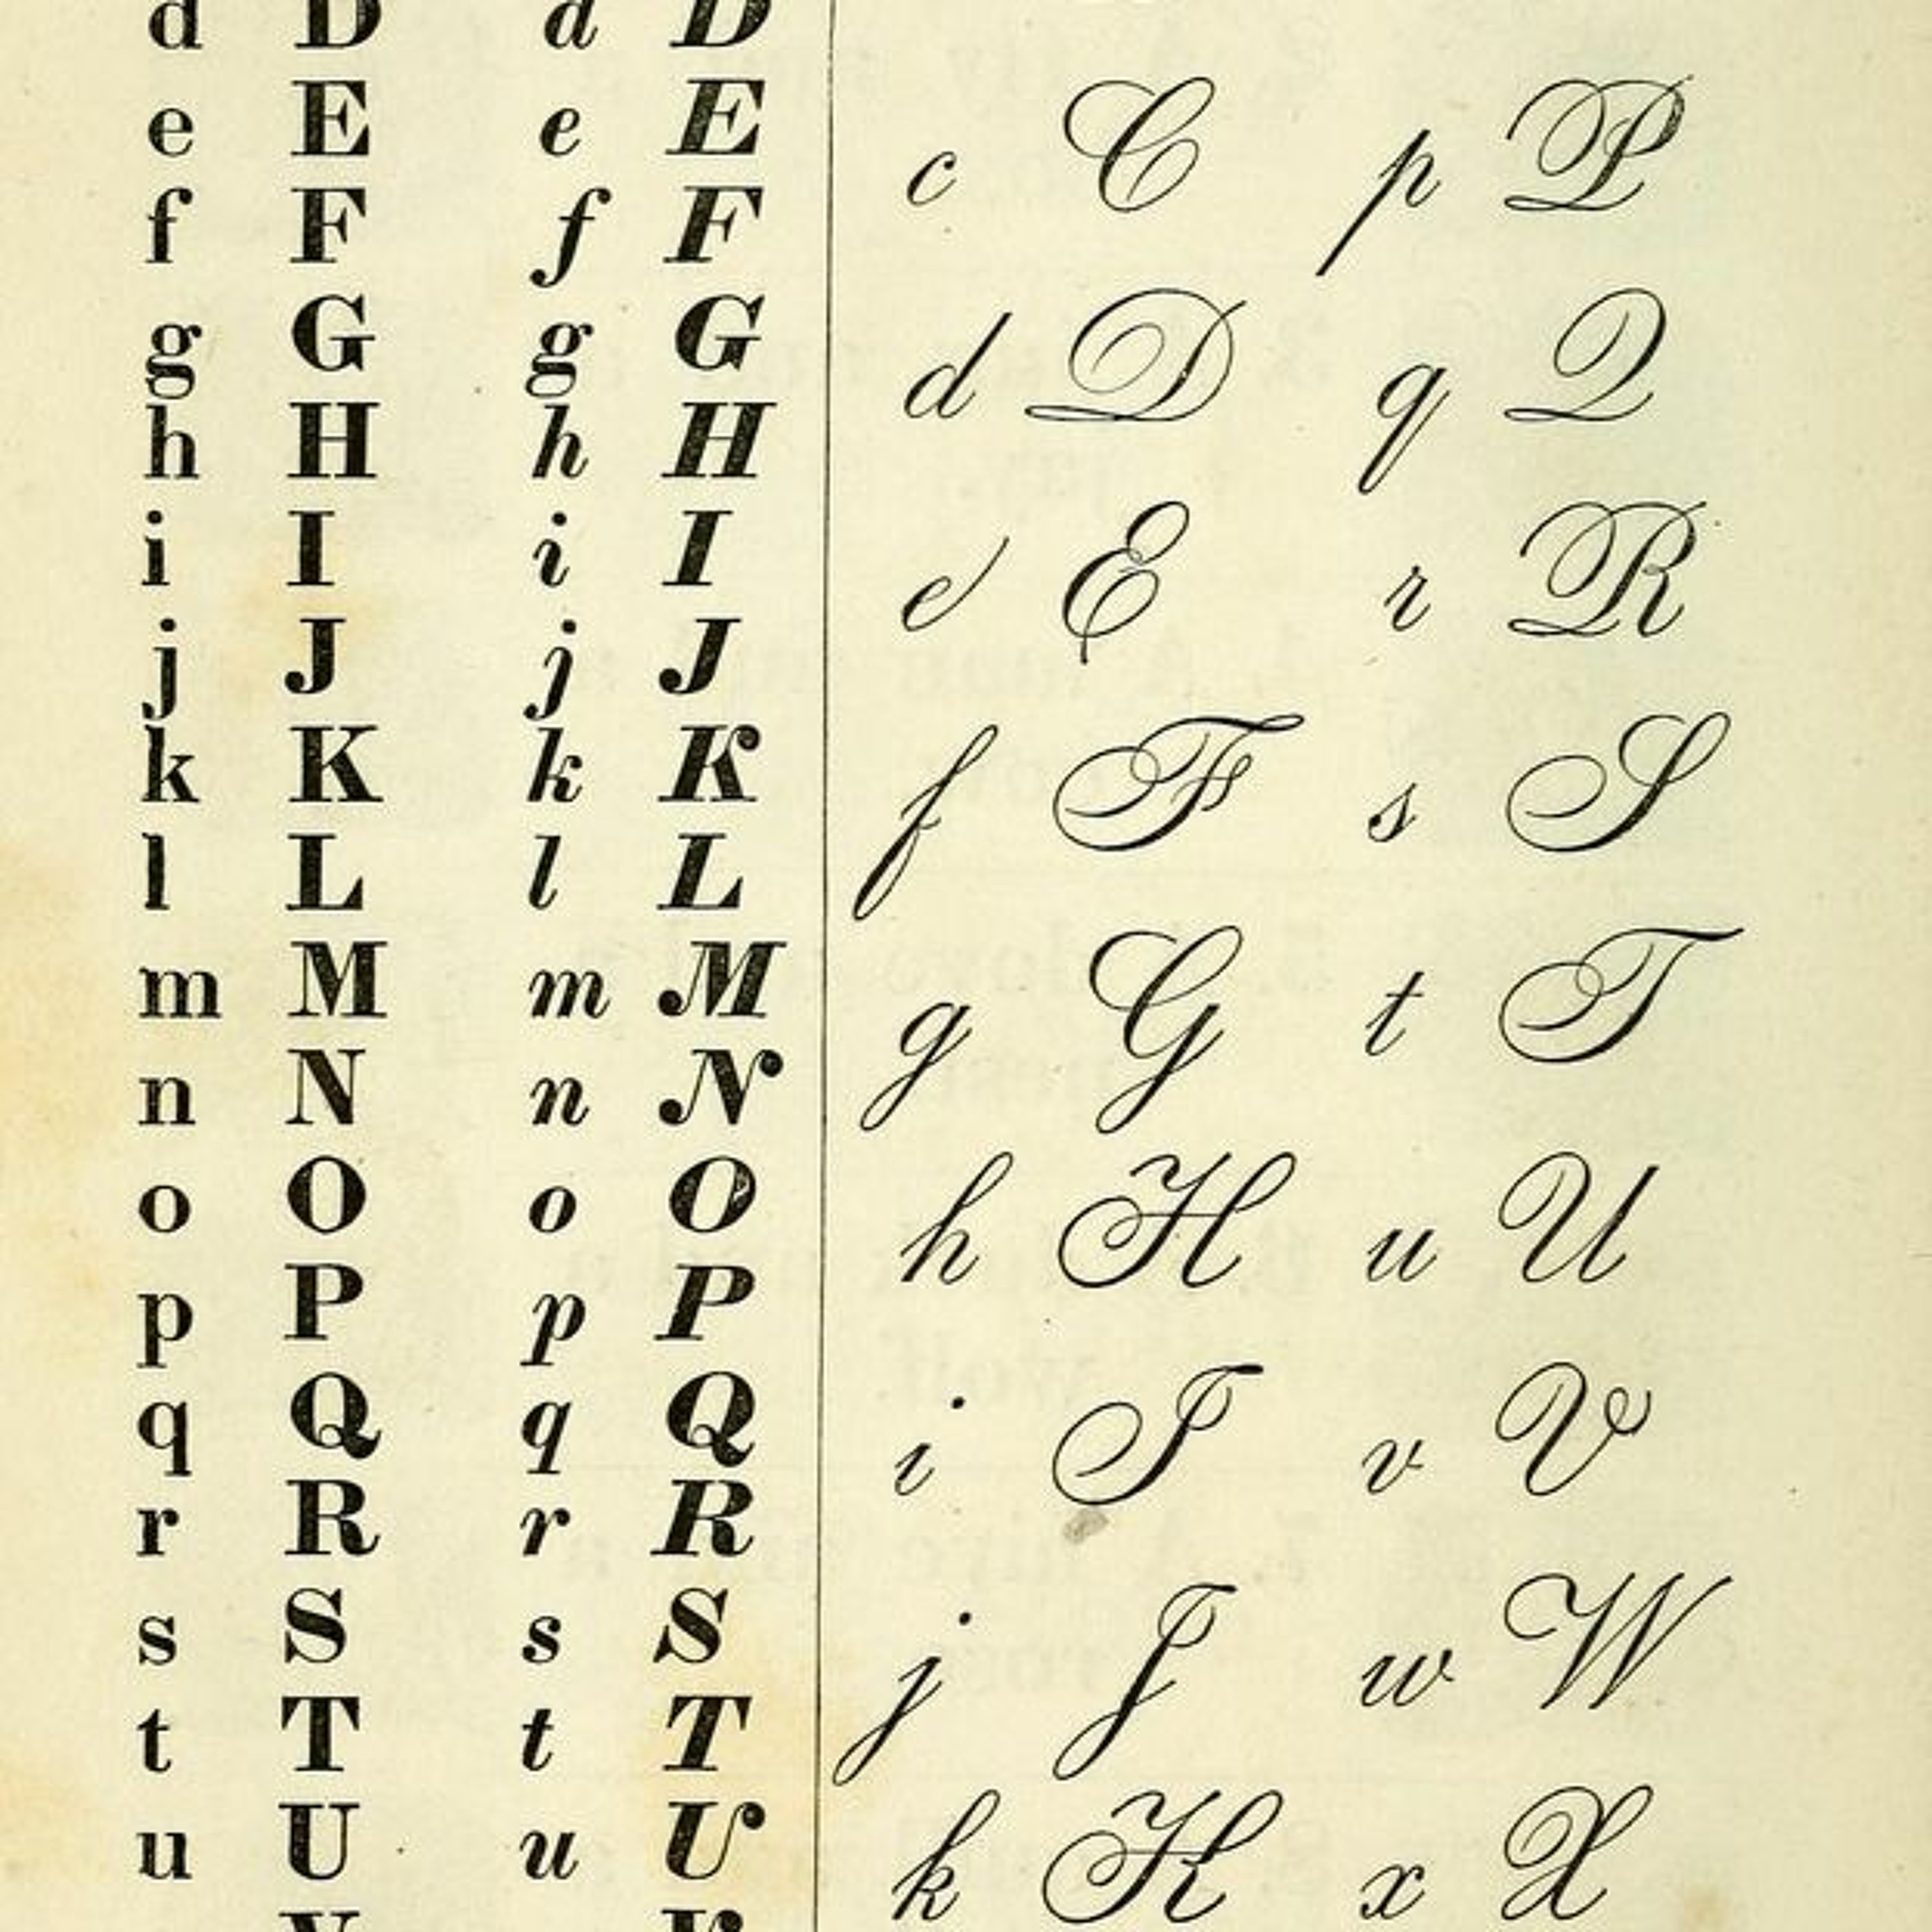 d D d D
e E e E
f F f F
g G g G
h H h H
i I i I
j J j J
k K k K
l L l L
m M m M
n N n N
o O o O
p P p P
q Q q Q
r R r R
s S s S
t T t T
u U u U
c C p P
d D q Q
e E r R
f F s S
g G t T
h H u U
i I v V
j J w W
k K x X